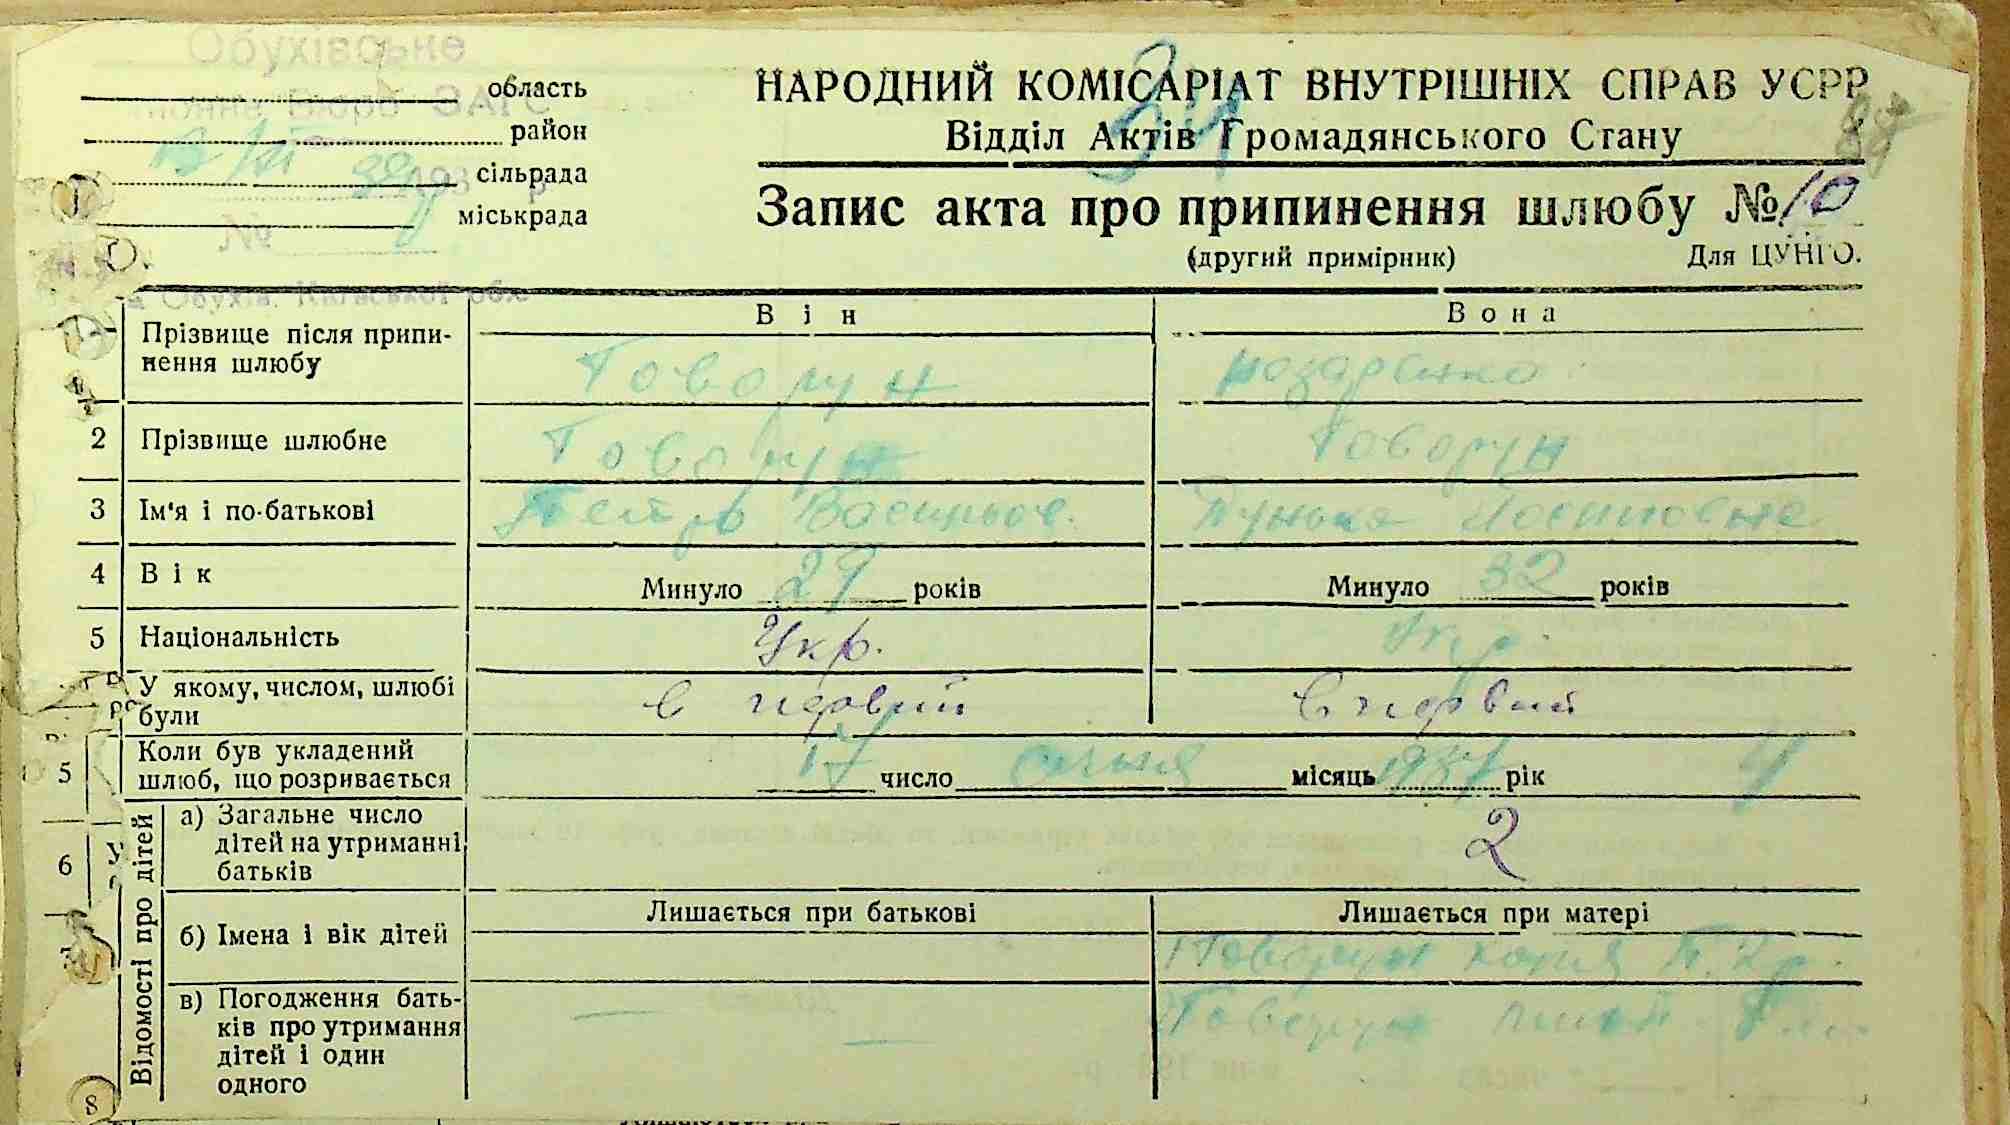 Обухівське
Бюро ЗАГС
область
район
сільрада
міськрада
№
Обухів, Київської обл.
НАРОДНИЙ КОМІСАРІАТ ВНУТРІШНІХ СПРАВ УСРР
Відділ Актів Громадянського Стану
Запис акта про припинення шлюбу № 10
(другий примірник) Для ЦУНГО.
Він Вона
Прізвище після припи-
нення шлюбу
Говорун Назаренко
2 Прізвище шлюбне Говорун Говорун
3 Ім'я і по-батькові Петро Васильов. Йосиповна
4 Вік Минуло 29 років Минуло 32 років
5 Національність Укр. Укр.
У якому, числом, шлюбі
були
в первий в первий
5 Коли був укладений
шлюб, що розривається
17 число січня місяць 1937 рік
Відомості про дітей
6 а) Загальне число
дітей на утриманні
батьків
2
Лишається при батькові Лишається при матері
б) Імена і вік дітей
Говорун П. 2 р.
в) Погодження бать-
ків про утримання
дітей і один
одного
Говорун
8